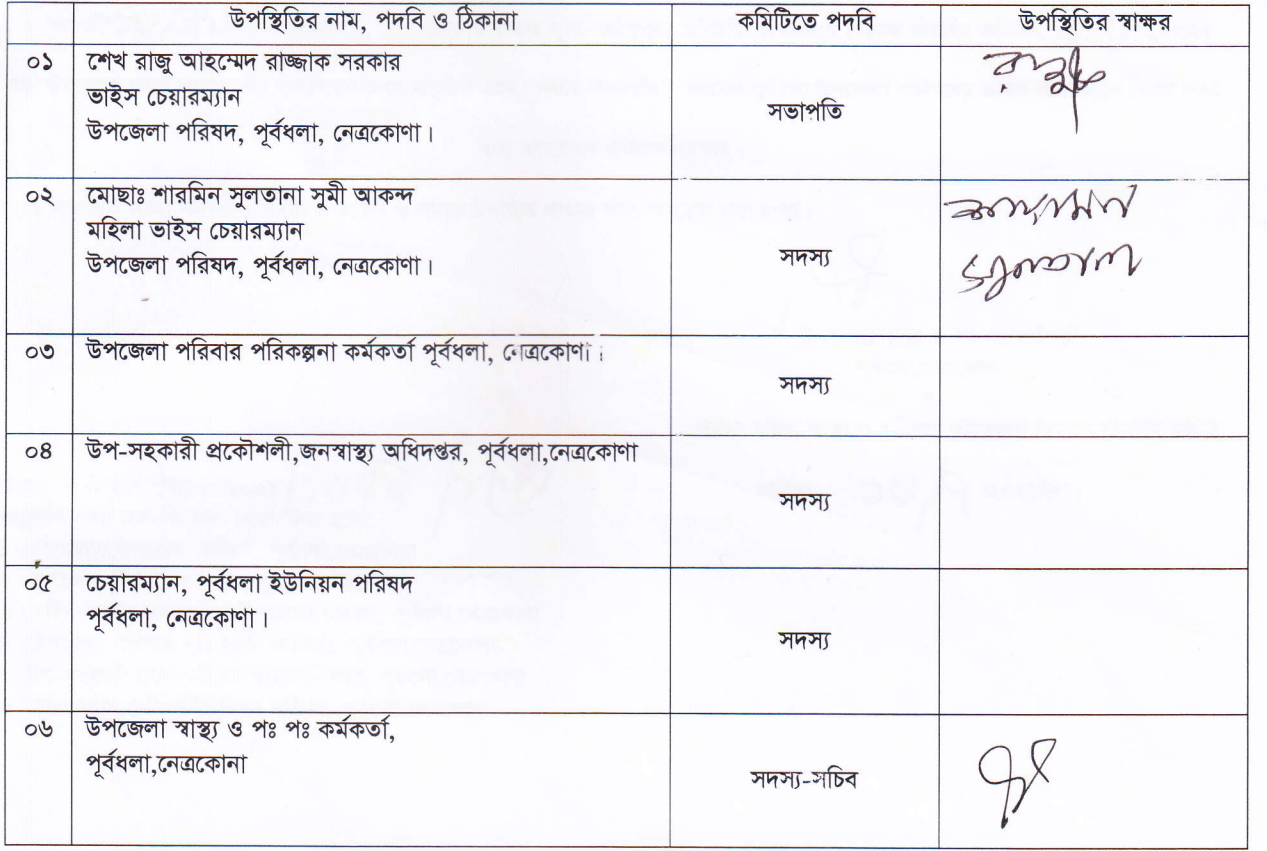 উপস্থিতির নাম, পদবি ও ঠিকানা কমিটিতে পদবি উপস্থিতির স্বাক্ষর
০১ শেখ রাজু আহম্মেদ রাজ্জাক সরকার
ভাইস চেয়ারম্যান
উপজেলা পরিষদ, পূর্বধলা, নেত্রকোণা।
সভাপতি
০২ মোছাঃ শারমিন সুলতানা সুমী আকন্দ
মহিলা ভাইস চেয়ারম্যান
উপজেলা পরিষদ, পূর্বধলা, নেত্রকোণা।
সদস্য
শারমিন
সুলতানা
০৩ উপজেলা পরিবার পরিকল্পনা কর্মকর্তা পূর্বধলা, নেত্রকোণা।
সদস্য
০৪ উপ-সহকারী প্রকৌশলী,জনস্বাস্থ্য অধিদপ্তর, পূর্বধলা,নেত্রকোণা
সদস্য
০৫ চেয়ারম্যান, পূর্বধলা ইউনিয়ন পরিষদ
পূর্বধলা, নেত্রকোণা।
সদস্য
০৬ উপজেলা স্বাস্থ্য ও পঃ পঃ কর্মকর্তা,
পূর্বধলা,নেত্রকোনা
সদস্য-সচিব